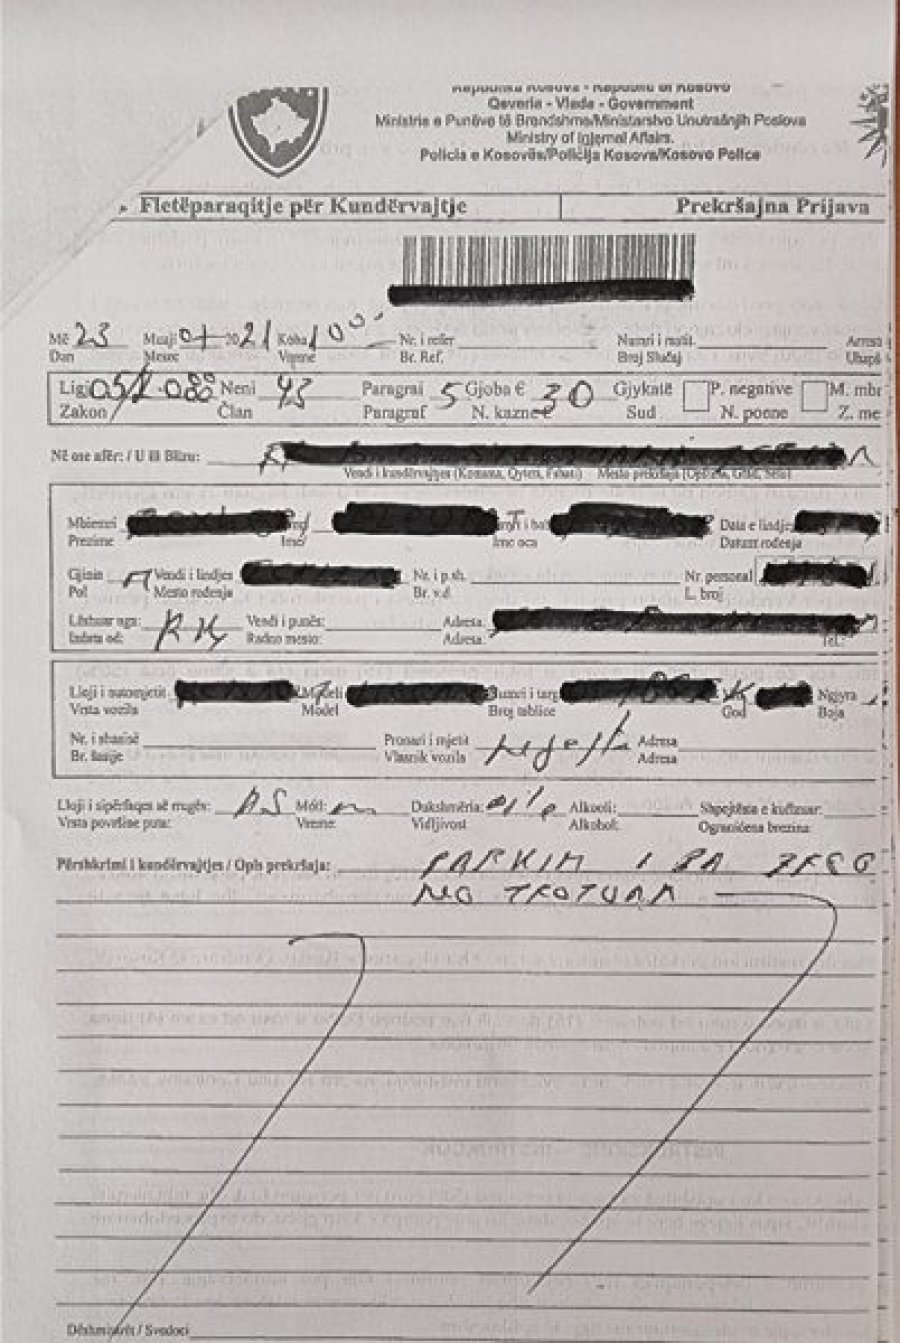 Republika Kosova - Republic of Kosovo
Qeveria - Vlada - Government
Ministria e Punëve të Brendshme/Ministarstvo Unutrašnjih Poslova
Ministry of Internal Affairs.
Policia e Kosovës/Policija Kosova/Kosovo Police
Fletëparaqitje për Kundërvajtje Prekršajna Prijava
Më 23 Muaji 2021 Koha Nr. i refer Numri i rastit. Arresti
Dan Mesec Vreme Br. Ref. Broj Slučaj Uhapš
Ligji 05/L-088 Neni 43 Paragrai 5 Gjoba € 30 Gjykatë P. negative M. mbr
Zakon Član Paragraf N. kazne Sud N. poene Z. me
Në ose afër: / U ili Blizu:
Vendi i kundërvajtjes (Komuna, Qyteti, Fshati.) Mesto prekršaja (Opština, Grad, Selo)
Mbiemri Data e lindjes
Prezime Ime Ime oca Datum rođenja
Gjinia Vendi i lindjes Nr. i p.sh. Nr. personal
Pol Mesto rođenja Br. v.d. L. broj
Lëshuar nga: RKS Vendi i punës: Adresa.
Izdata od: Radno mesto: Adresa. Tel.:
Lloji i automjetit Modeli Numri i targ Ngjyra
Vrsta vozila Model Broj tablice God Boja
Nr. i shasisë Pronari i mjetit Adresa
Br. šasije Vlasnik vozila Adresa
Lloji i sipërfaqes së rrugës: AS Moti: Dukshmëria: Alkooli: Shpejtësia e kufizuar:
Vrsta površine puta: Vreme: Vidljivost Alkohol: Ograničena brzina:
Përshkrimi i kundërvajtjes / Opis prekršaja: PARKIM
TROTUAR
Dëshmitarët / Svedoci